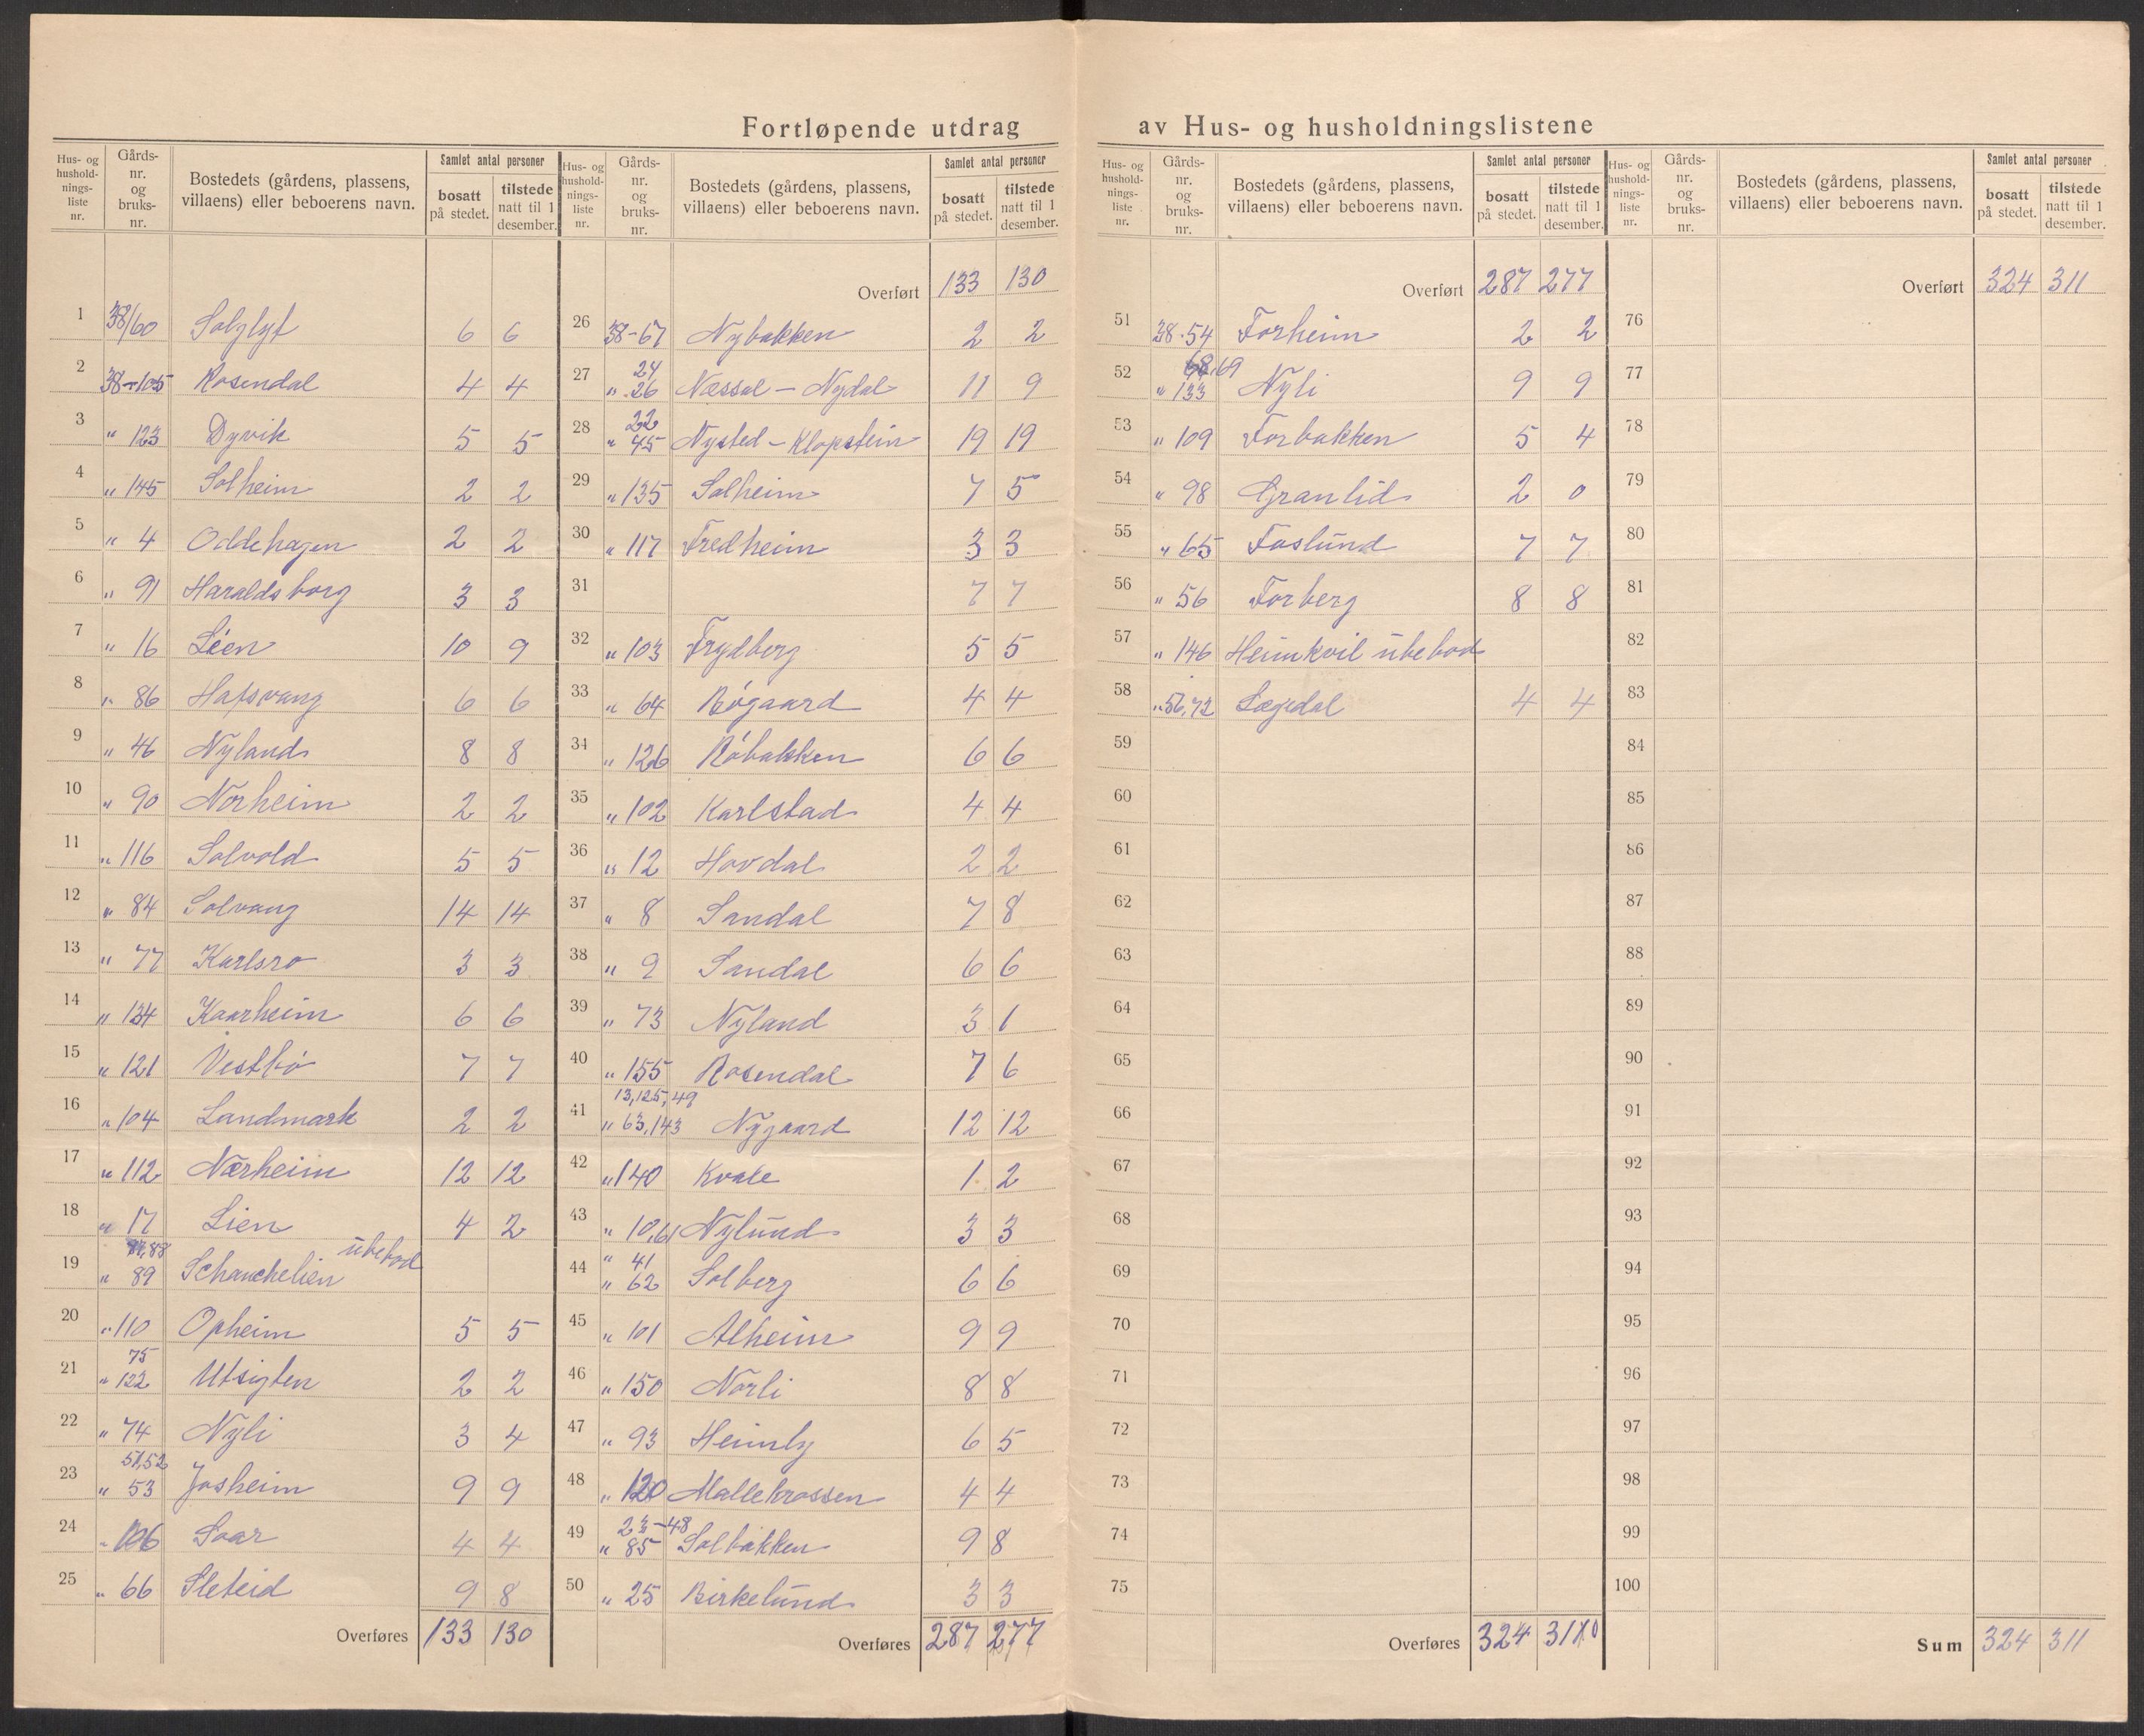 Fortløpende utdrag av Hus- og husholdningslistene
Hus- og husholdningsliste nr. | Gårds-nr. og bruks-nr. | Bostedets (gårdens, plassens, villaens) eller beboerens navn. | Samlet antal personer: bosatt på stedet. | tilstede natt til 1 desember.
1 38/60 Solglyt 6 6
2 38-105 Rosendal 4 4
3 " 123 Dyvik 5 5
4 " 145 Solheim 2 2
5 " 4 Oddehagen 2 2
6 " 91 Haraldsborg 3 3
7 " 16 Lien 10 9
8 " 86 Hafsvang 6 6
9 " 46 Nyland 8 8
10 " 90 Norheim 2 2
11 " 116 Solvold 5 5
12 " 84 Solvang 14 14
13 " 77 Karlsro 3 3
14 " 134 Kaarheim 6 6
15 " 121 Vestbø 7 7
16 " 104 Landmark 2 2
17 " 112 Nærheim 12 12
18 " 17 Lien 4 2
19 88 " 89 Schanchelien ubebod
20 " 110 Opheim 5 5
21 75 " 122 Utsigten 2 2
22 " 74 Nyli 3 4
23 51,52 " 53 Josheim 9 9
24 " 106 Soar 4 4
25 " 66 Sleteid 9 8
Overføres 133 130
Hus- og husholdningsliste nr. | Gårds-nr. og bruks-nr. | Bostedets (gårdens, plassens, villaens) eller beboerens navn. | Samlet antal personer: bosatt på stedet. | tilstede natt til 1 desember.
Overført 133 130
26 38-67 Nybakken 2 2
27 24 " 26 Næssal - Nydal 11 9
28 22 " 45 Nysted - Klopstein 19 19
29 " 135 Solheim 7 5
30 " 117 Fredheim 3 3
31 7 7
32 " 103 Frydberg 5 5
33 " 64 Røgaard 4 4
34 " 126 Røbakken 6 6
35 " 102 Karlstad 4 4
36 " 12 Hovdal 2 2
37 " 8 Sandal 7 8
38 " 9 Sandal 6 6
39 " 73 Nyland 3 1
40 " 155 Rosendal 7 6
41 13,125,49 " 63,143 Nygaard 12 12
42 " 140 Kvale 1 2
43 " 10,61 Nylund 3 3
44 " 41 " 62 Solberg 6 6
45 " 101 Alheim 9 9
46 " 150 Norli 8 8
47 " 93 Heimly 6 5
48 " 120 Mallekrossen 4 4
49 23-48 " 85 Solbakken 9 8
50 " 25 Birkelund 3 3
Overføres 287 277
Hus- og husholdningsliste nr. | Gårds-nr. og bruks-nr. | Bostedets (gårdens, plassens, villaens) eller beboerens navn. | Samlet antal personer: bosatt på stedet. | tilstede natt til 1 desember.
Overført 287 277
51 38.54 Forheim 2 2
52 68,69 " 133 Nyli 9 9
53 " 109 Forbakken 5 4
54 " 98 Granlid 2 0
55 " 65 Foslund 7 7
56 " 56 Forberg 8 8
57 " 146 Heimkvil ubebod
58 " 56,72 Lægdal 4 4
59
60
61
62
63
64
65
66
67
68
69
70
71
72
73
74
75
Overføres 324 311
Hus- og husholdningsliste nr. | Gårds-nr. og bruks-nr. | Bostedets (gårdens, plassens, villaens) eller beboerens navn. | Samlet antal personer: bosatt på stedet. | tilstede natt til 1 desember.
Overført 324 311
76
77
78
79
80
81
82
83
84
85
86
87
88
89
90
91
92
93
94
95
96
97
98
99
100
Sum 324 311